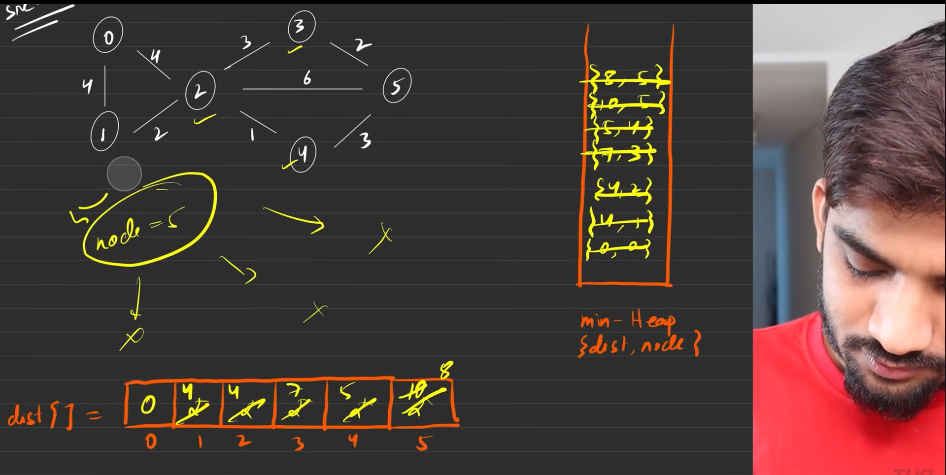 src
0
4
3
3
2
4
2
6
5
1
2
1
4
3
node = 5
{8, 5}
{10, 5}
{5, 4}
{7, 3}
{4, 2}
{4, 1}
{0, 0}
min-Heap
{dist, node}
8
dist[] = 0 4 4 7 5 10
0 1 2 3 4 5